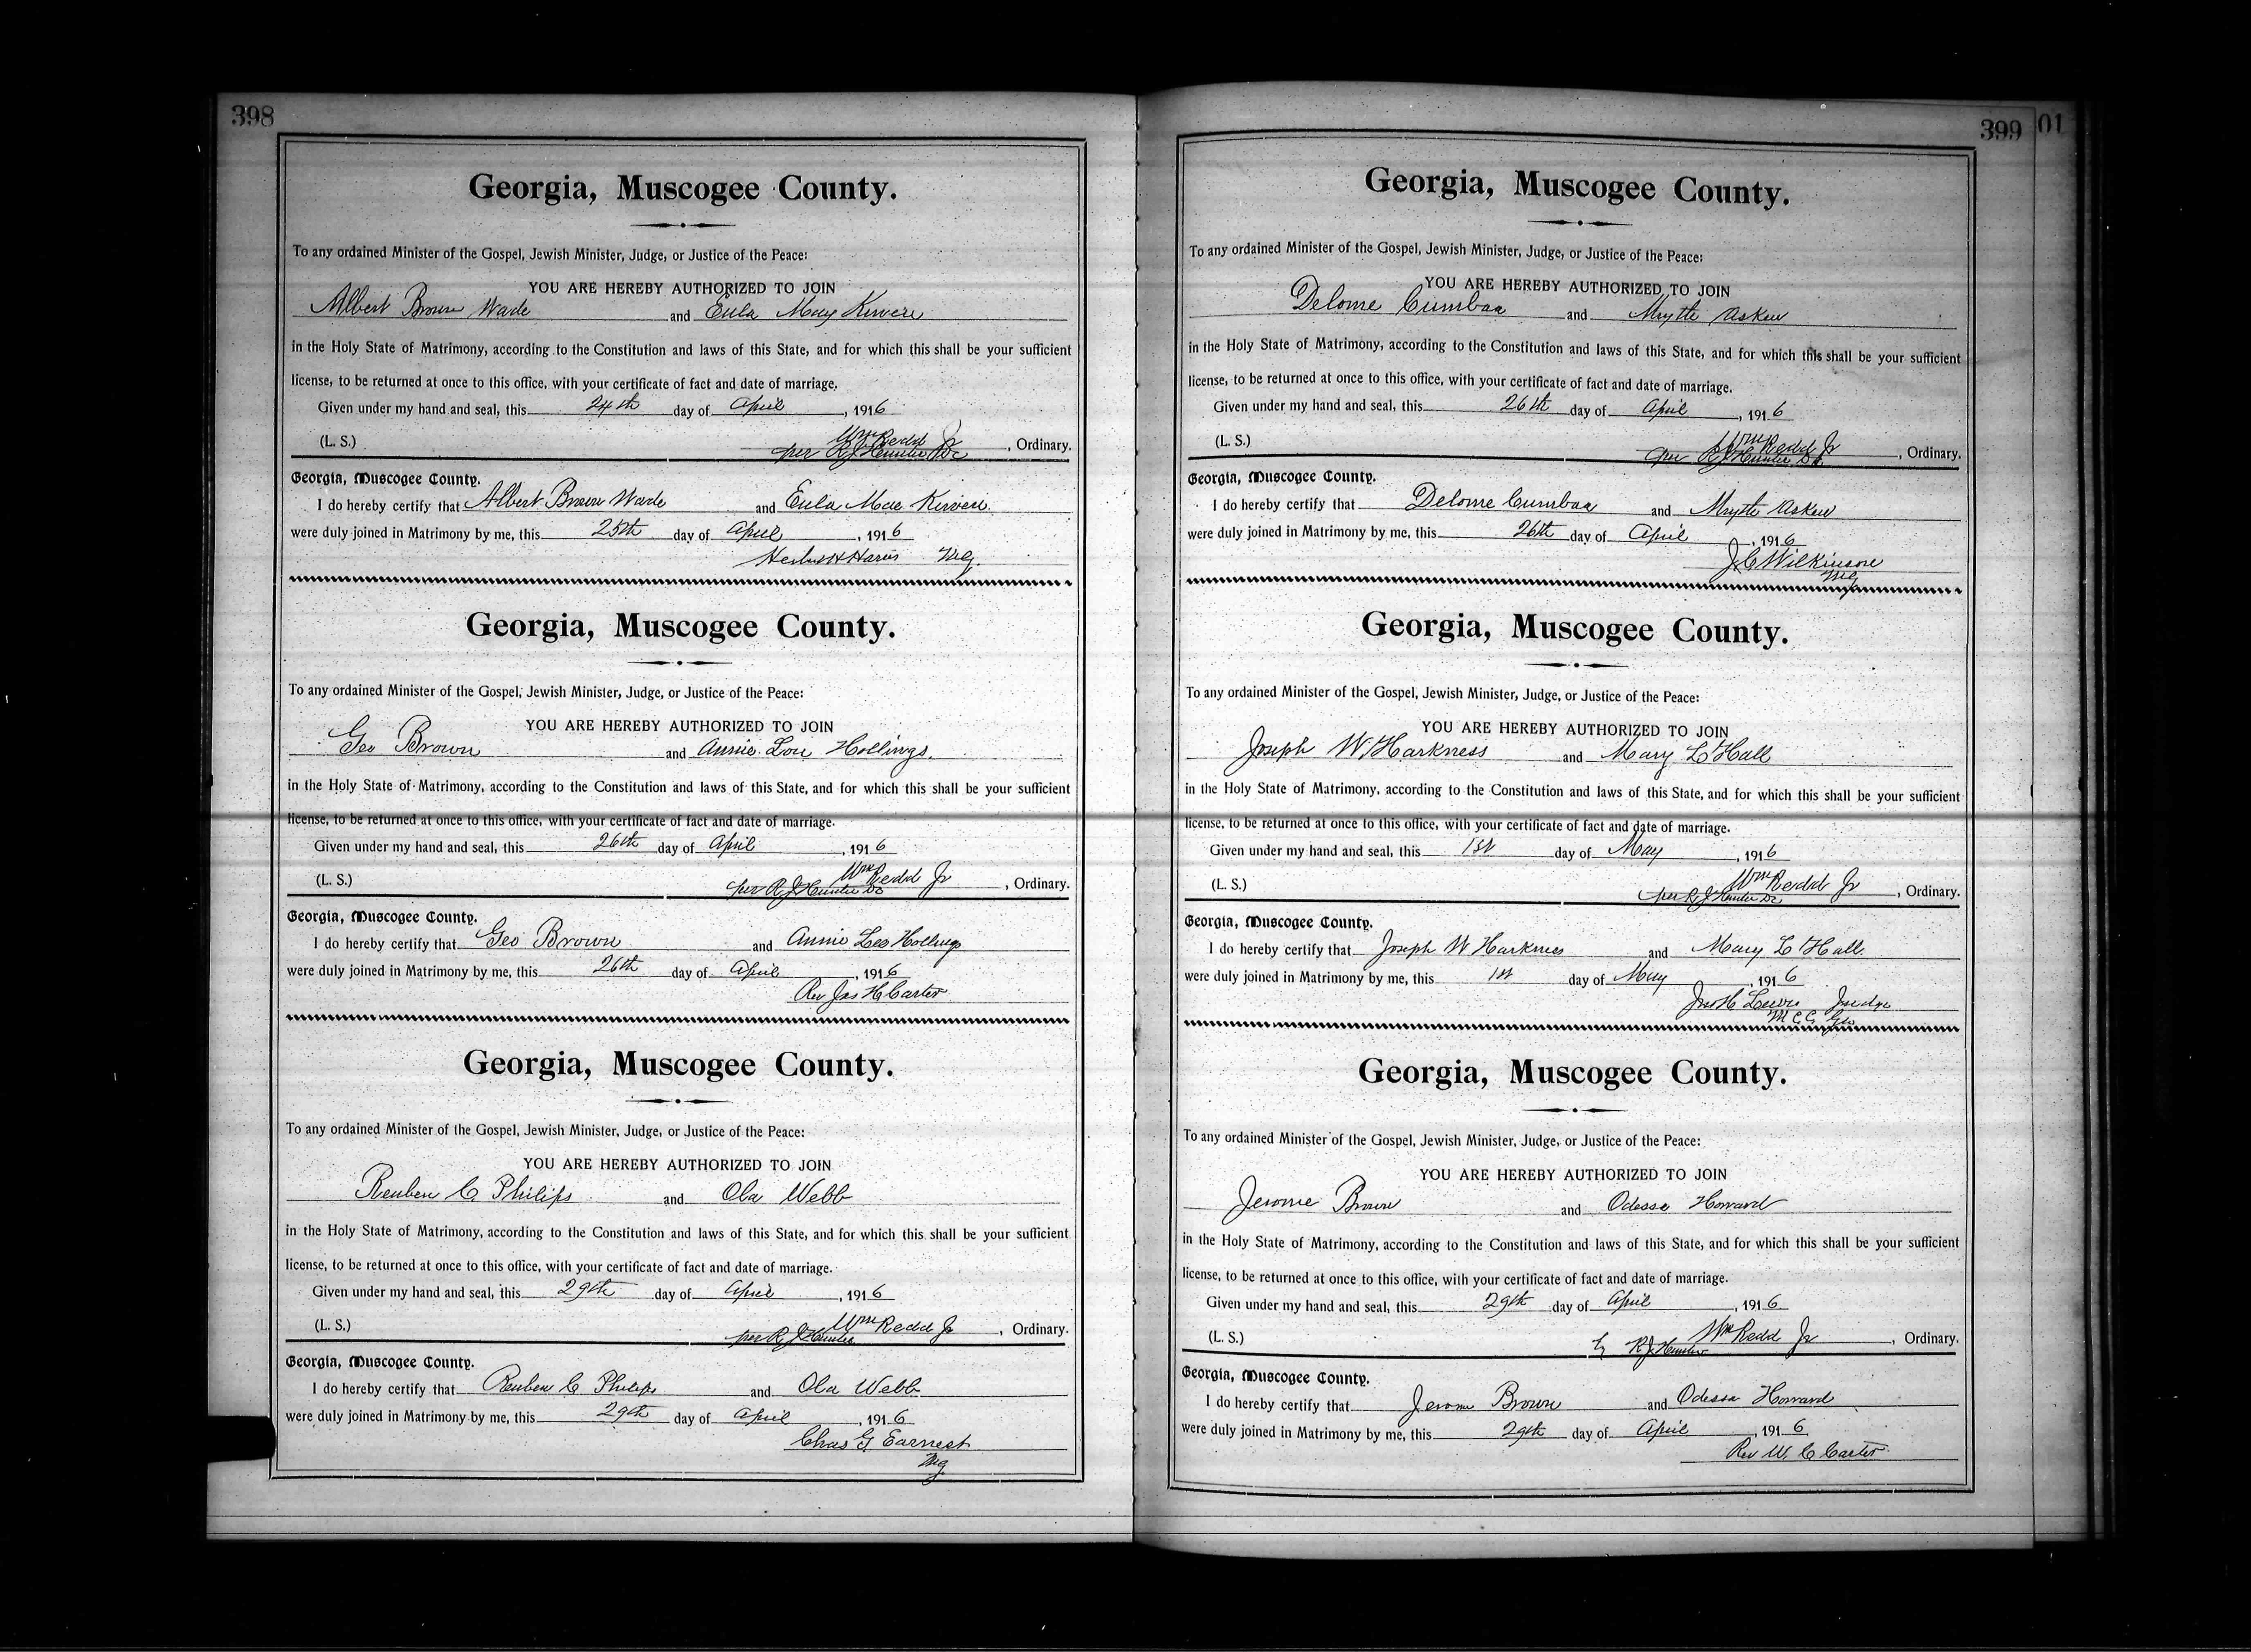 398
Georgia, Muscogee County.
To any ordained Minister of the Gospel, Jewish Minister, Judge, or Justice of the Peace:
YOU ARE HEREBY AUTHORIZED TO JOIN
Albert Brown Wade and Eula May Kirven
in the Holy State of Matrimony, according to the Constitution and laws of this State, and for which this shall be your sufficient
license, to be returned at once to this office, with your certificate of fact and date of marriage.
Given under my hand and seal, this 24th day of April, 1916
Wm Redd Jr
(L. S.) per R J Hunter DC, Ordinary.
Georgia, Muscogee County.
I do hereby certify that Albert Brown Wade and Eula Mae Kirven
were duly joined in Matrimony by me, this 25th day of April, 1916
Harris Mg.
Georgia, Muscogee County.
To any ordained Minister of the Gospel, Jewish Minister, Judge, or Justice of the Peace:
YOU ARE HEREBY AUTHORIZED TO JOIN
Geo Brown and Annie Lou Hollings.
in the Holy State of Matrimony, according to the Constitution and laws of this State, and for which this shall be your sufficient
license, to be returned at once to this office, with your certificate of fact and date of marriage.
Given under my hand and seal, this 26th day of April, 1916
Wm Redd Jr
(L. S.) per R J Hunter DC, Ordinary.
Georgia, Muscogee County.
I do hereby certify that Geo Brown and Annie Leo Hollings
were duly joined in Matrimony by me, this 26th day of April, 1916
Rev Jas H Carter
Georgia, Muscogee County.
To any ordained Minister of the Gospel, Jewish Minister, Judge, or Justice of the Peace:
YOU ARE HEREBY AUTHORIZED TO JOIN
Reuben C Philips and Ola Webb
in the Holy State of Matrimony, according to the Constitution and laws of this State, and for which this shall be your sufficient
license, to be returned at once to this office, with your certificate of fact and date of marriage.
Given under my hand and seal, this 29th day of April, 1916
Wm Redd Jr
(L. S.) per R J Hunter, Ordinary.
Georgia, Muscogee County.
I do hereby certify that Reuben C Philips and Ola Webb
were duly joined in Matrimony by me, this 29th day of April, 1916
Chas G Earnest
Mg
399
01
Georgia, Muscogee County.
To any ordained Minister of the Gospel, Jewish Minister, Judge, or Justice of the Peace:
YOU ARE HEREBY AUTHORIZED TO JOIN
Delome Cumbaa and Mrytle Askew
in the Holy State of Matrimony, according to the Constitution and laws of this State, and for which this shall be your sufficient
license, to be returned at once to this office, with your certificate of fact and date of marriage.
Given under my hand and seal, this 26th day of April, 1916
Wm Redd Jr
(L. S.) per R J Hunter DC, Ordinary.
Georgia, Muscogee County.
I do hereby certify that Delome Cumbaa and Mrytle Askew
were duly joined in Matrimony by me, this 26th day of April, 1916
J C Wilkinson
Mg
Georgia, Muscogee County.
To any ordained Minister of the Gospel, Jewish Minister, Judge, or Justice of the Peace:
YOU ARE HEREBY AUTHORIZED TO JOIN
Joseph W Harkness and Mary L Hall
in the Holy State of Matrimony, according to the Constitution and laws of this State, and for which this shall be your sufficient
license, to be returned at once to this office, with your certificate of fact and date of marriage.
Given under my hand and seal, this 1st day of May, 1916
Wm Redd Jr
(L. S.) per R J Hunter DC, Ordinary.
Georgia, Muscogee County.
I do hereby certify that Joseph W Harkness and Mary L Hall.
were duly joined in Matrimony by me, this 1st day of May, 1916
Jno H Lewis Judge
M C C Ga
Georgia, Muscogee County.
To any ordained Minister of the Gospel, Jewish Minister, Judge, or Justice of the Peace:
YOU ARE HEREBY AUTHORIZED TO JOIN
Jerome Brown and Odessa Howard
in the Holy State of Matrimony, according to the Constitution and laws of this State, and for which this shall be your sufficient
license, to be returned at once to this office, with your certificate of fact and date of marriage.
Given under my hand and seal, this 29th day of April, 1916
Wm Redd Jr
(L. S.) by R J Hunter, Ordinary.
Georgia, Muscogee County.
I do hereby certify that Jerome Brown and Odessa Howard
were duly joined in Matrimony by me, this 29th day of April, 1916
Rev W. C Carter